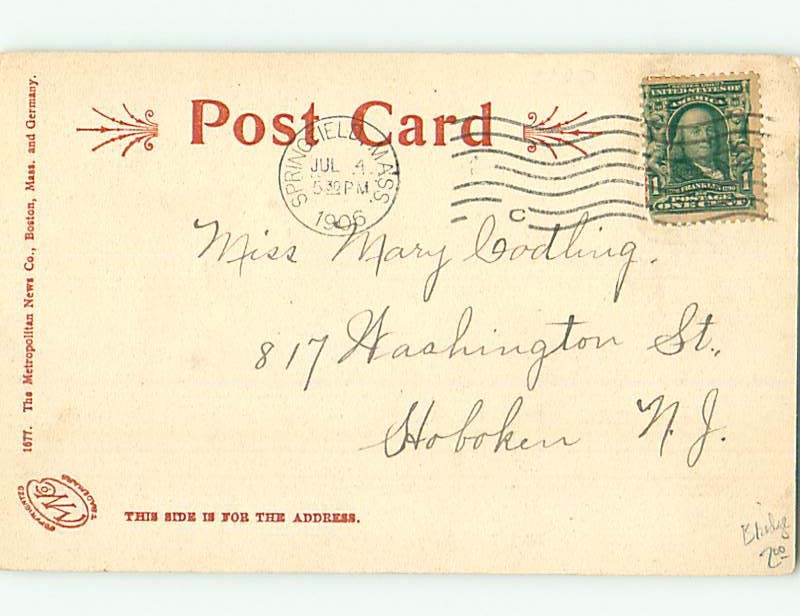 Post Card
SPRINGFIELD, MASS.
JUL 4
5 30 PM
1906
C
UNITED STATES OF
AMERICA
1 FRANKLIN 1
POSTAGE
ONE CENT
Miss Mary Codling.
817 Washington St.,
Hoboken N. J.
1677. The Metropolitan News Co., Boston, Mass. and Germany.
THIS SIDE IS FOR THE ADDRESS.
2.00